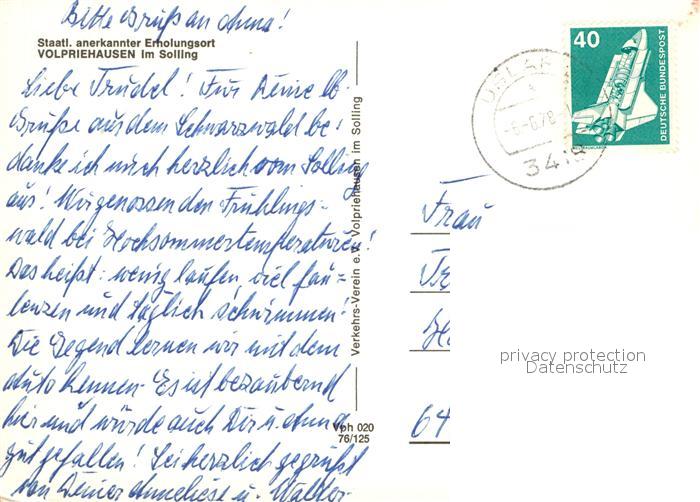 Bitte Gruß an Anna!
Staatl. anerkannter Erholungsort
VOLPRIEHAUSEN im Solling
Liebe Trudel! Für Deine lb.
Grüße aus dem Schwarzwald be-
danke ich mich herzlich vom Solling
aus! Wir genossen den Frühlings-
wald bei Hochsommertemperaturen!
Das heißt: wenig laufen, viel fau-
lenzen und täglich schwimmen!
Die Gegend lernen wir mit dem
Auto kennen. Es ist bezaubernd
hier und würde auch Dir u. Anna
gut gefallen! Sei herzlich gegrüßt
von Deiner Anneliese u. Walter.
Verkehrs-Verein e.V. Volpriehausen im Solling
Vph 020
76/125
USLAR
-6.-6.78
3418
40
DEUTSCHE BUNDESPOST
Frau
64
privacy protection
Datenschutz